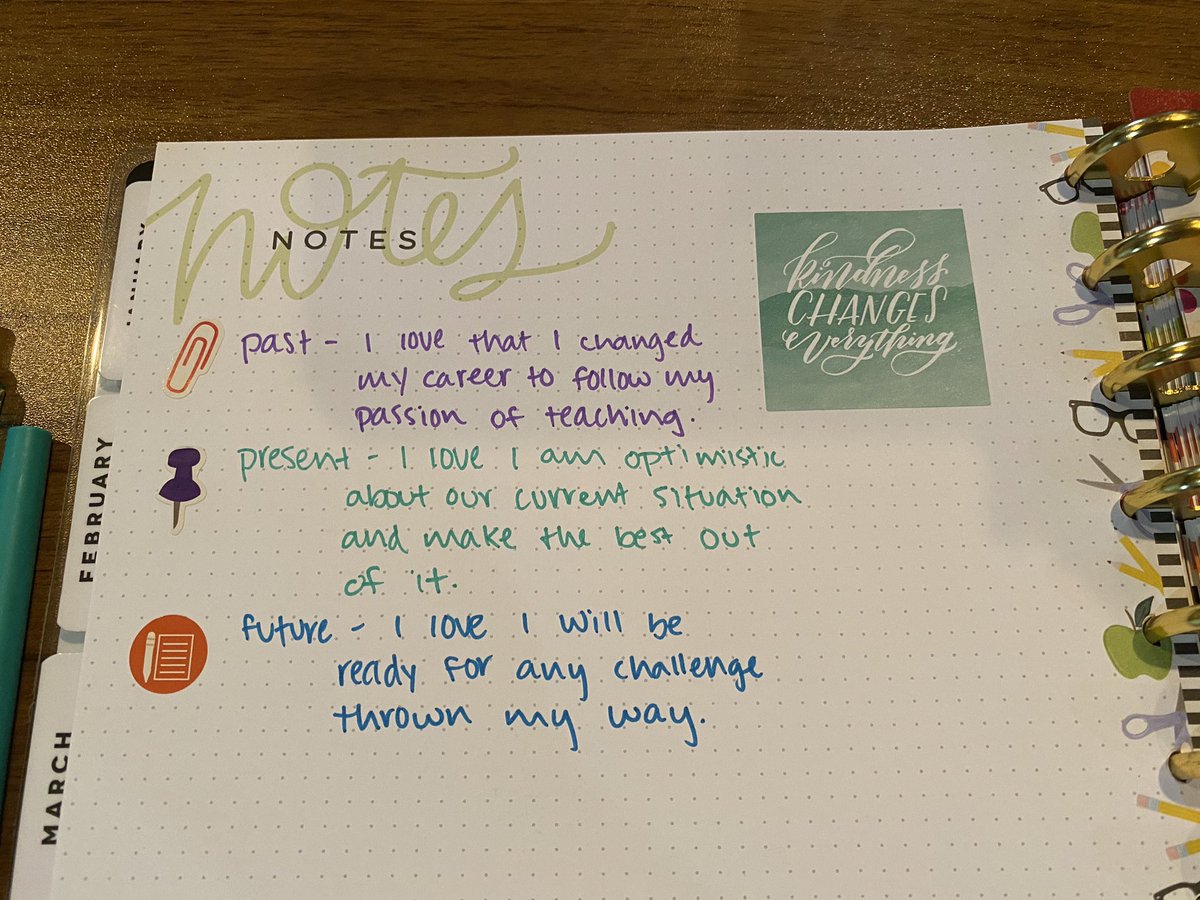 notes
NOTES
kindness
CHANGES
everything
past - I love that I changed
my career to follow my
passion of teaching.
present - I love I am optimistic
about our current situation
and make the best out
of it.
future - I love I will be
ready for any challenge
thrown my way.
JANUARY
FEBRUARY
MARCH